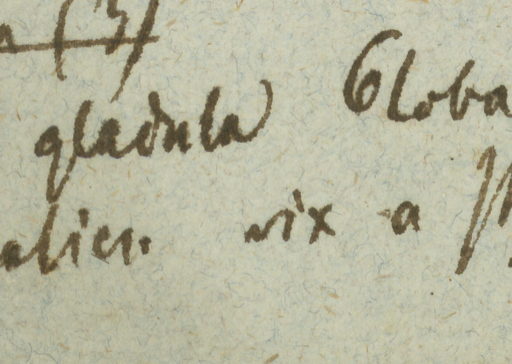 (3)
gladula Globa
alien. vix a